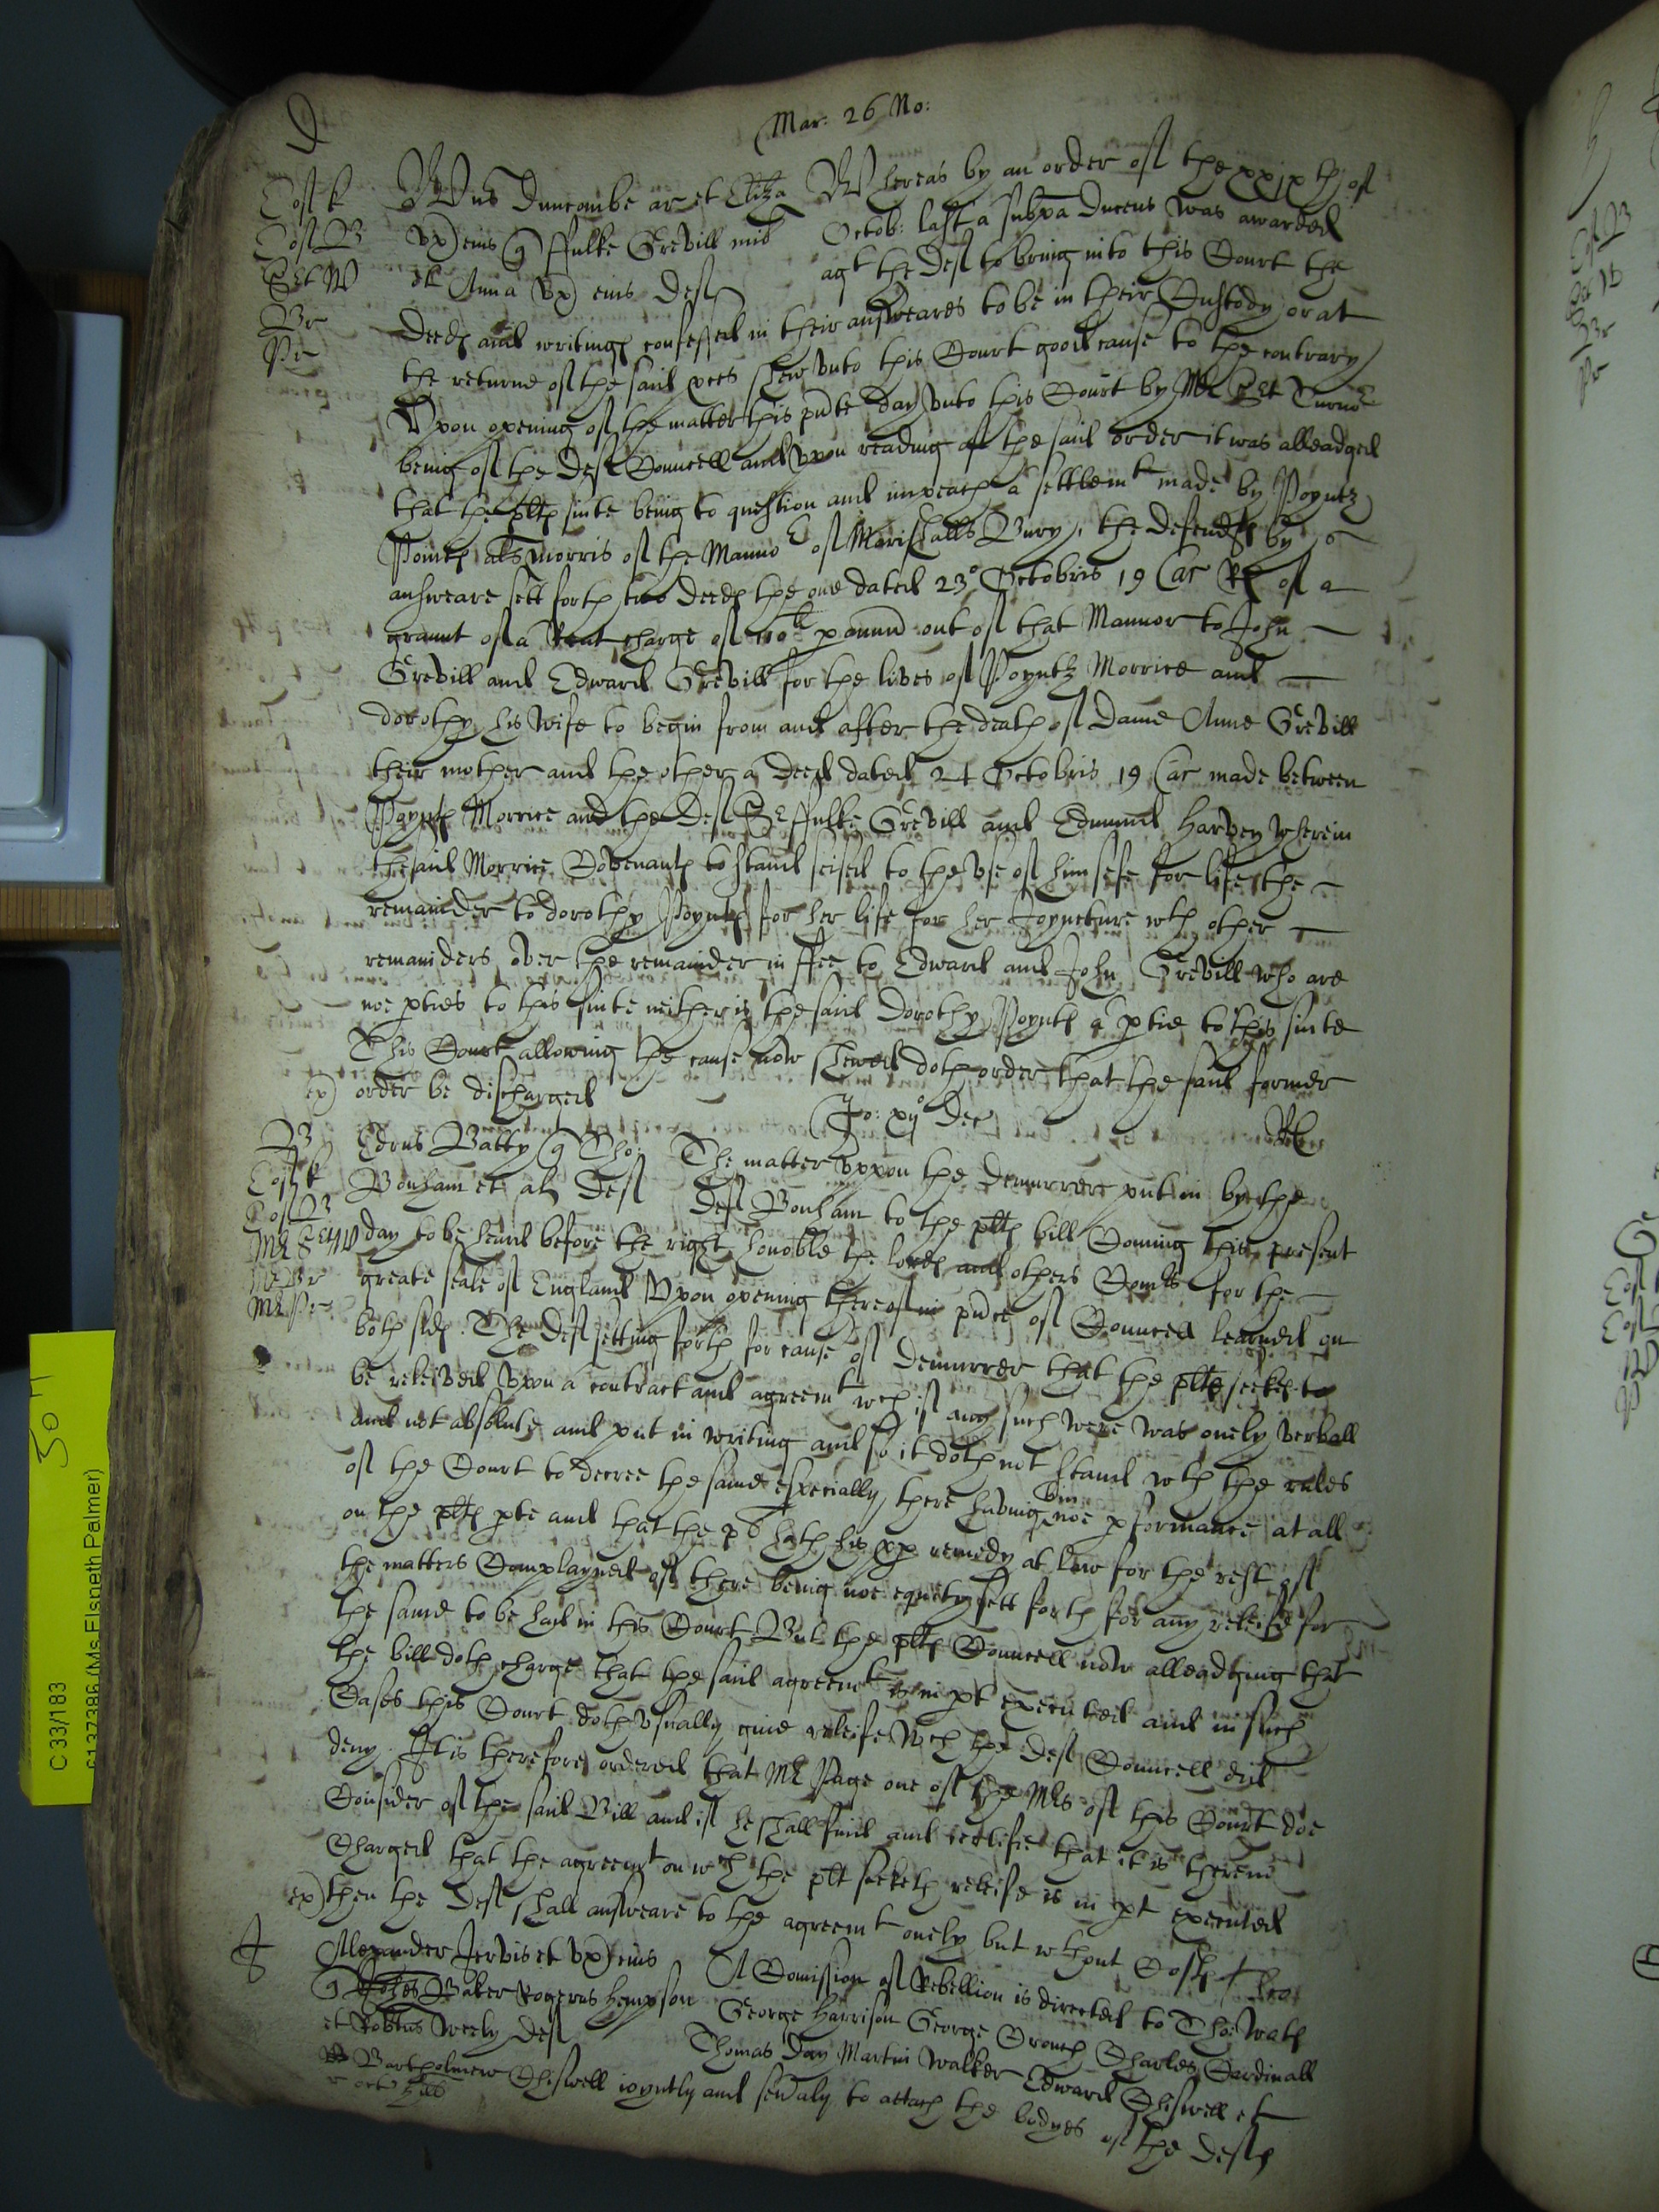 D
Mar: 26 No:
Cost k
Cost B
Sr W
Br
Pr
Wus Duncombe ar et Eliza Whereas by an order of the xxixth of
vx eius q ffulke Grevill mil Octob: last a subpa Ducens was awarded
et Anna vx eius Def agt the Def to bring into this Court the
Deeds and writings confessed in their answeares to be in their Custody or at
the returne of the said pces shew unto this Court good cause to the contrary
Upon opening of the matter this pnte day unto this Court by Mr Turnor
being of the Def Councell and upon reading of the said order it was alleadged
that the plts suite being to question and impeach a settlemt made by Poyntz
Pointz als Morris of the Mannor of Marishalls Bury, the defendts by
answeare sett forth two deeds the one dated 23o Octobris 19 Car Rs of a
graunt of a Rent charge of li p annu out of that Mannor to John
Grevill and Edward Grevill for the lives of Poyntz Morrice and
dorothy his wife to begin from and after the death of Dame Anne Grevill
their mother and the other a deed dated 24 Octobris 19 Car made between
Poyntz Morrice and the Def Sr ffulke Grevill and Edmund Harvey wherein
the said Morrice Covenants to stand seised to the use of himselfe for life the
remainder to dorothy Poyntz for her life for her Joyncture wth other
remainders over the remainder in ffee to Edward and John Grevill who are
noe pties to this suite neither is the said Dorothy Poyntz a ptie to this suite
This Court allowing the cause now shewed doth order that the said former
ex order be discharged
Jo: xijo Dec
B
Cost k
Cost B
Mr Sr W
Mr Br
Mr Pr
Edrus Batty q Tho: The matter uppon the demurrer put in by the
Bonham et al Def Def Bonham to the plts bill Coming this present
day to be heard before the right honoble the lords and others Comrs for the
greate seale of England Upon opening thereof in pnce of Councell learned on
both sids. The Def setting forth for cause of demurrer that the plts seekes to
be releived upon a contract and agreemt wch if any such were was onely verball
and not absolute and put in writing and so it doth not stand wth the rules
of the Court to decree the same especially there having bin noe pformance at all
on the plts pte and that the pt hath his pp remedy at law for the rest of
the matters Complayned of there being noe equity sett forth for any releife for
the same to be had in this Court But the plts Councell now alleadging that
the bill doth charge that the said agreemt is in pt executed and in such
Cases this Court doth usually give releife wch the Def Councell did
deny. It is therefore ordered that Mr Page one of the Mrs of this Court doe
Consider of the said Bill and if he shall find and certifie that it is therein
Charged that the agreemt on wch the plt seeketh releife is in pt executed
ex then the Def shall answeare to the agreemt onely but wthout Costs
Alexander Jervis et vx eius A Comission of Rebellion is directed to Tho: Wath
q Johes Baker Rogerus Hempson George Harrison George Crouch Charles Cardinall
et Robtus Weely Def Thomas Day Martin Walker Edward Chiswell et
Bartholmew Chiswell ioyntly and sevaly to attach the bodyes of the Defts
r oct Hill
30 11
C 33/183
6137396 (Ms Elspeth Palmer)